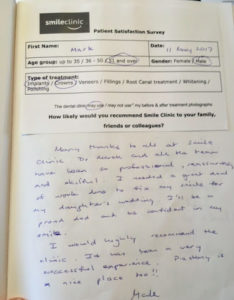 smileclinic
Patient Satisfaction Survey
First Name: Mark Date: 11 May 2017
Age group: up to 35 / 36 - 50 / 51 and over Gender: Female / Male
Type of treatment:
Implants / Crowns / Veneers / Fillings / Root Canal treatment / Whitening /
Polishing
The dental clinic may use / may not use* my before & after treatment photographs
How likely would you recommend Smile Clinic to your family,
friends or colleagues?
Many thanks to all at Smile
Clinic Dr and all the team
have been so professional, reassuring
and skilful. I needed a great deal
of work done to fix my smile for
my daughter's wedding I'll be a
proud dad and be confident in my
smile.
I would highly recommend the
clinic. It has been a very
successful experience. is
a nice place too !!
Mark